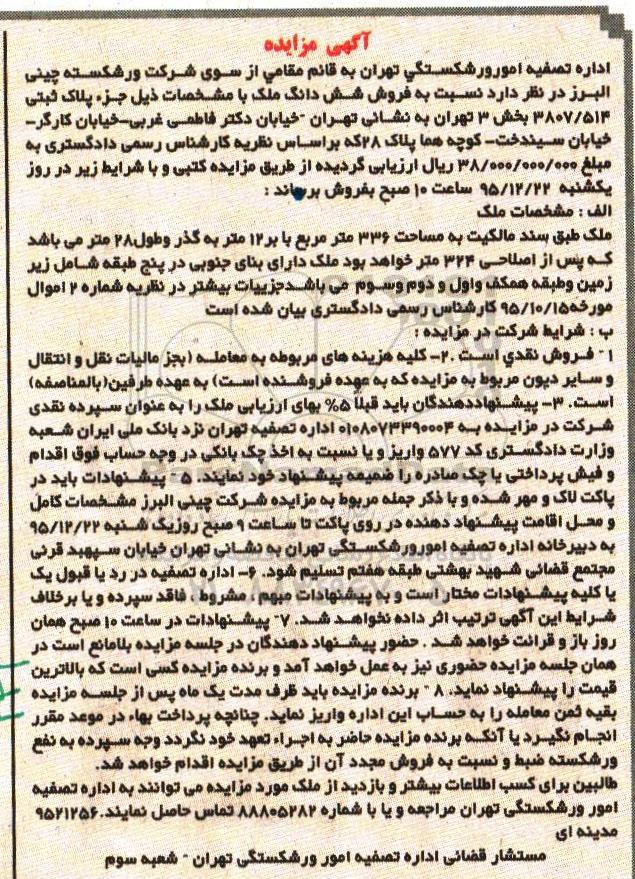 آگهی مزایده
اداره تصفیه امورورشکستگي تهران به قائم مقامي از سوی شرکت ورشکسته چینی
البرز در نظر دارد نسبت به فروش شش دانگ ملک با مشخصات ذیل جزء پلاک ثبتی
۳۸۰۷/۵۱۴ بخش ۳ تهران به نشانی تهران -خیابان دکتر فاطمی غربی-خیابان کارگر-
خیابان سیندخت- کوچه هما پلاک ۲۸که براساس نظریه کارشناس رسمی دادگستری به
مبلغ ۳۸/۰۰۰/۰۰۰/۰۰۰ ریال ارزیابی گردیده از طریق مزایده کتبی و با شرایط زیر در روز
یکشنبه ۹۵/۱۲/۲۲ ساعت ۱۰ صبح بفروش برساند :
الف : مشخصات ملک
ملک طبق سند مالکیت به مساحت ۳۳۶ متر مربع با بر۱۲ متر به گذر وطول۲۸ متر می باشد
که پس از اصلاحی ۳۲۴ متر خواهد بود ملک دارای بنای جنوبی در پنج طبقه شامل زیر
زمین وطبقه همکف واول و دوم وسوم می باشدجزییات بیشتر در نظریه شماره ۲ اموال
مورخه۹۵/۱۰/۱۵ کارشناس رسمی دادگستری بیان شده است
ب : شرایط شرکت در مزایده :
۱- فروش نقدي است .۲- کلیه هزینه های مربوطه به معامله (بجز مالیات نقل و انتقال
و سایر دیون مربوط به مزایده که به عهده فروشنده است) به عهده طرفین(بالمناصفه)
است. ۳- پیشنهاددهندگان باید قبلاً ۵% بهای ارزیابی ملک را به عنوان سپرده نقدی
شرکت در مزایده به ۰۱۰۸۰۷۳۳۹۰۰۰۴ اداره تصفیه تهران نزد بانک ملی ایران شعبه
وزارت دادگستری کد ۵۷۷ واریز و یا نسبت به اخذ چک بانکی در وجه حساب فوق اقدام
و فیش پرداختی یا چک صادره را ضمیمه پیشنهاد خود نمایند. ۵- پیشنهادات باید در
پاکت لاک و مهر شده و با ذکر جمله مربوط به مزایده شرکت چینی البرز مشخصات کامل
و محل اقامت پیشنهاد دهنده در روی پاکت تا ساعت ۹ صبح روزیک شنبه ۹۵/۱۲/۲۲
به دبیرخانه اداره تصفیه امورورشکستگی تهران به نشانی تهران خیابان سپهبد قرنی
مجتمع قضائی شهید بهشتی طبقه هفتم تسلیم شود. ۶- اداره تصفیه در رد یا قبول یک
یا کلیه پیشنهادات مختار است و به پیشنهادات مبهم ، مشروط ، فاقد سپرده و یا برخلاف
شرایط این آگهی ترتیب اثر داده نخواهد شد. ۷- پیشنهادات در ساعت ۱۰ صبح همان
روز باز و قرائت خواهد شد . حضور پیشنهاد دهندگان در جلسه مزایده بلامانع است در
همان جلسه مزایده حضوری نیز به عمل خواهد آمد و برنده مزایده کسی است که بالاترین
قیمت را پیشنهاد نماید. ۸ - برنده مزایده باید ظرف مدت یک ماه پس از جلسه مزایده
بقیه ثمن معامله را به حساب این اداره واریز نماید. چنانچه پرداخت بهاء در موعد مقرر
انجام نگیرد یا آنکه برنده مزایده حاضر به اجراء تعهد خود نگردد وجه سپرده به نفع
ورشکسته ضبط و نسبت به فروش مجدد آن از طریق مزایده اقدام خواهد شد.
طالبین برای کسب اطلاعات بیشتر و بازدید از ملک مورد مزایده می توانند به اداره تصفیه
امور ورشکستگی تهران مراجعه و یا با شماره ۸۸۸۰۵۲۸۲ تماس حاصل نمایند.۹۵۲۱۲۵۶
مدینه ای
مستشار قضائی اداره تصفیه امور ورشکستگی تهران - شعبه سوم